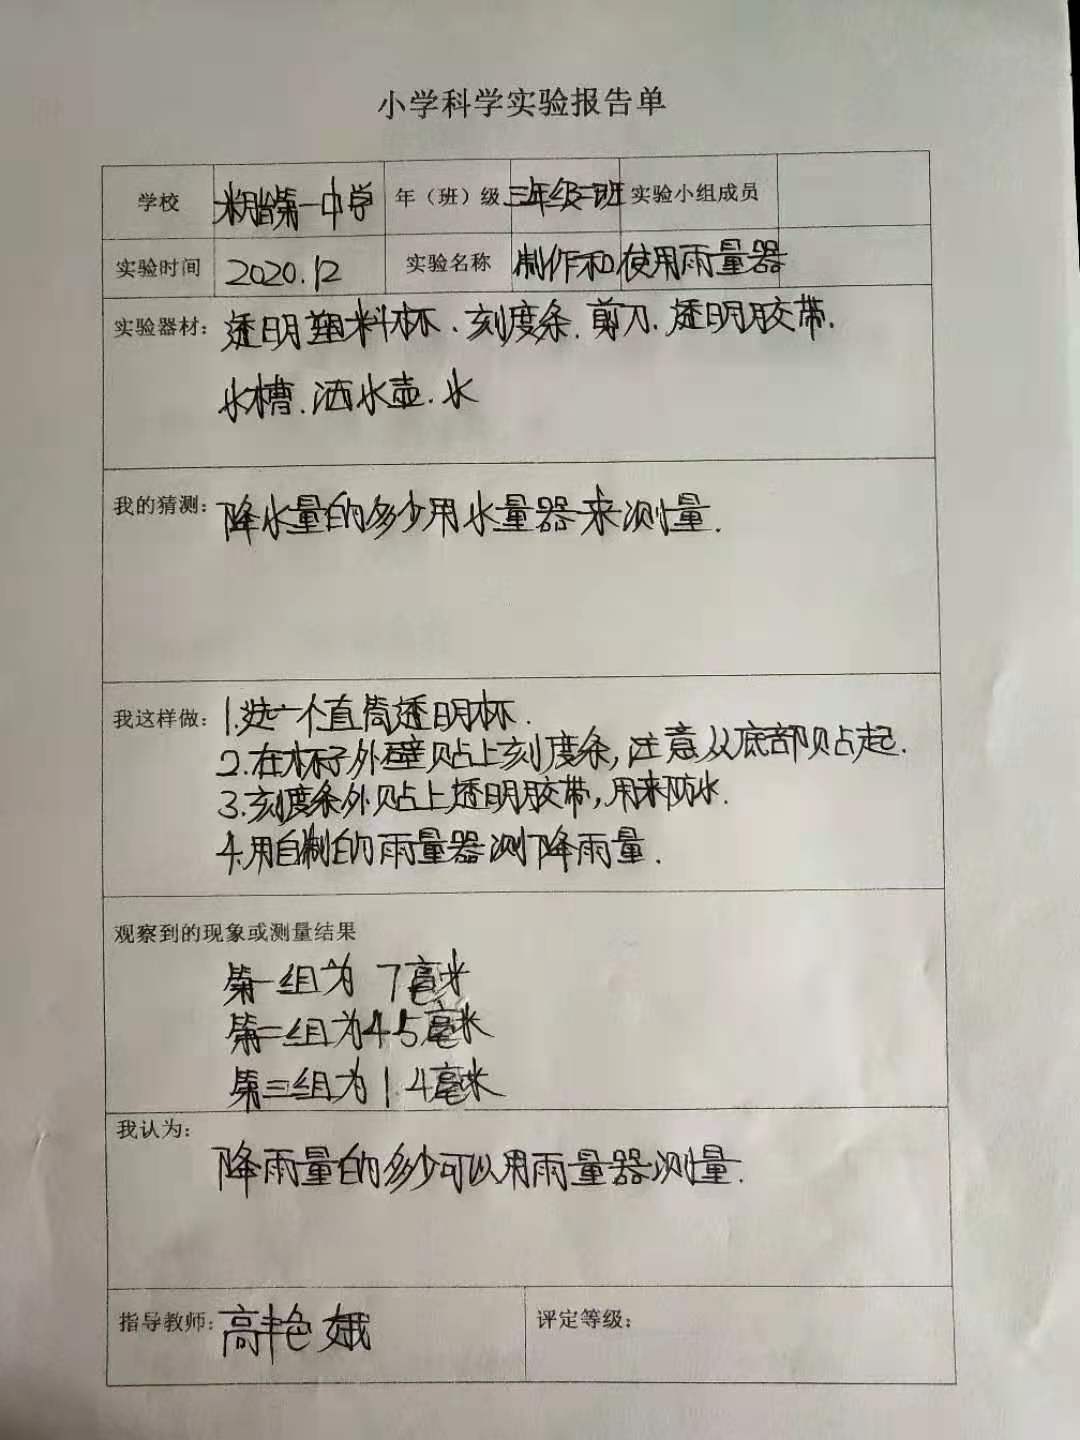 小学科学实验报告单
学校 第一中学 年（班）级 三年级三班 实验小组成员
实验时间 2020.12 实验名称 制作和使用雨量器
实验器材：透明塑料杯、刻度条、剪刀、透明胶带、
水槽、洒水壶、水
我的猜测：降水量的多少用水量器来测量.
我这样做：1.选一个直筒透明杯.
2.在杯子外壁贴上刻度条,注意从底部贴起.
3.刻度条外贴上透明胶带,用来防水.
4.用自制的雨量器测下降雨量.
观察到的现象或测量结果
第一组为 7毫米
第二组为45毫米
第三组为1.4毫米
我认为：
降雨量的多少可以用雨量器测量.
指导教师：高艳娥 评定等级：